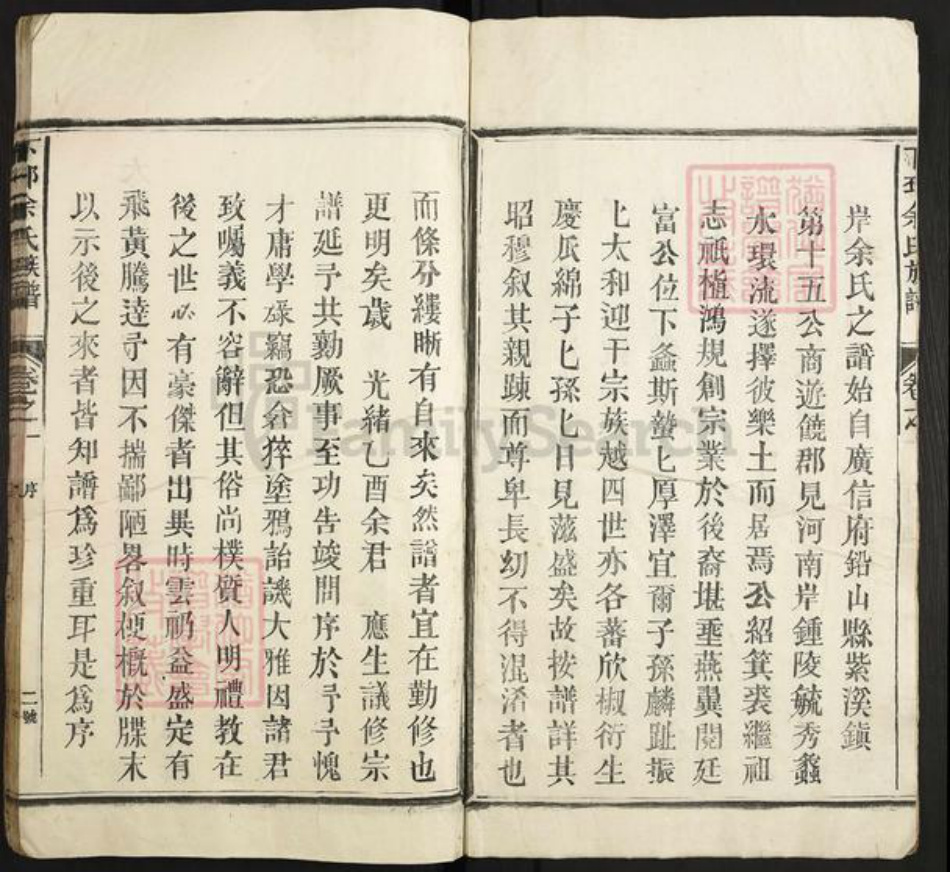 岸余氏之譜始自廣信府鉛山縣紫溪鎮
第十五公商遊饒郡見河南岸鍾陵毓秀蠡
水環流遂擇彼樂土而居焉公紹箕裘繼祖
志祇植鴻規創宗業於後裔堪垂燕翼閱廷
富公位下螽斯蟄匕厚澤宜爾子孫麟趾振
匕太和迎干宗族越四世亦各蕃欣椒衍生
慶瓜綿子匕孫匕日見茲盛矣故按譜詳其
昭穆叙其親踈而尊卑長幼不得混淆者也
而條分縷晰有自來矣然譜者宜在勤修也
更明矣歲 光緒乙酉余君 應生議修宗
譜延予共勷厥事至功告竣問序於予予愧
才庸學碌竊恐弇猝塗鴉詒譏大雅因諸君
致囑義不容辭但其俗尚樸質人明禮教在
後之世必有豪傑者出異時雲礽益盛定有
飛黃騰達予因不揣鄙陋畧叙梗概於牒末
以示後之來者皆知譜爲珍重耳是爲序
下邳余氏族譜
卷之一
序
二號
FamilySearch